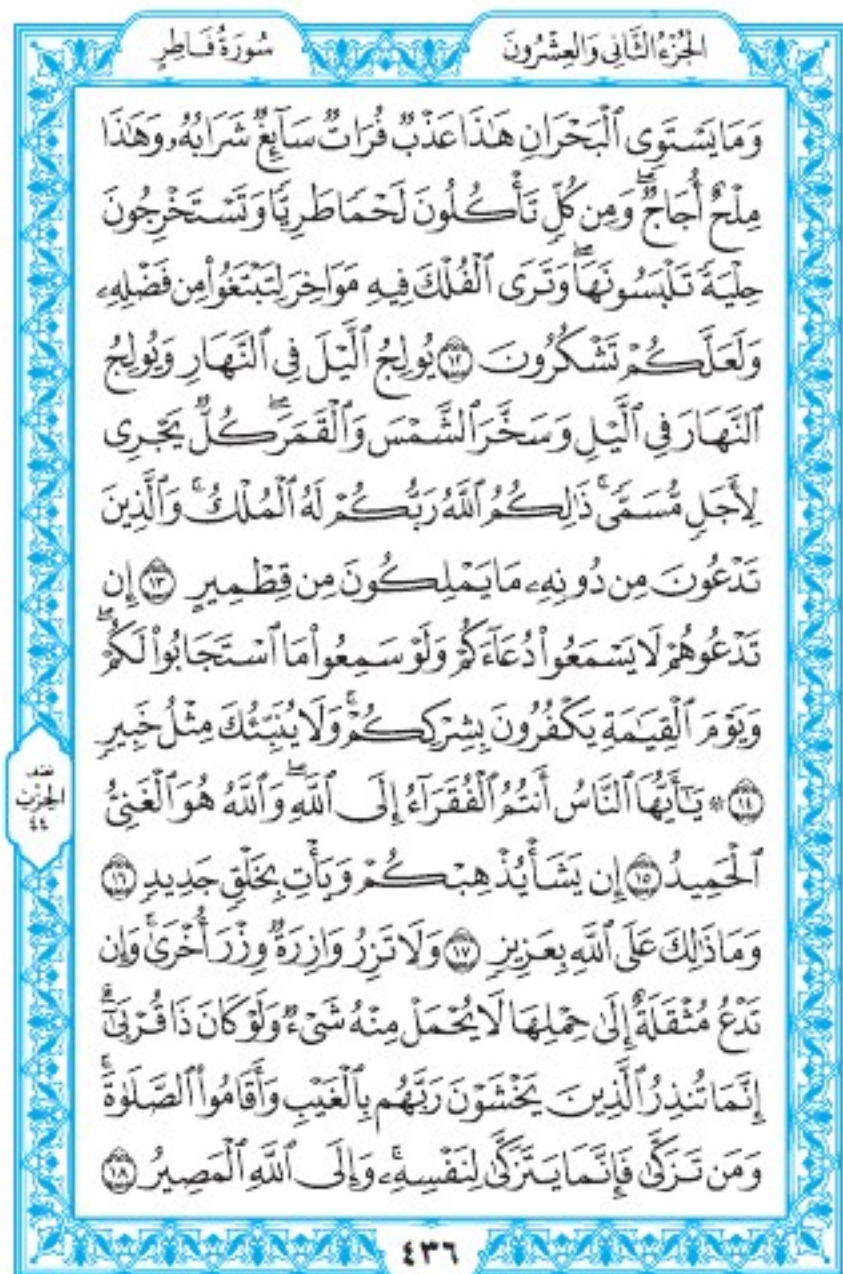 الجُزْءُ الثَّانِي وَالعِشْرُونَ
سُورَةُ فَاطِرٍ
وَمَا يَسْتَوِى ٱلْبَحْرَانِ هَٰذَا عَذْبٌ فُرَاتٌ سَآئِغٌ شَرَابُهُۥ وَهَٰذَا
مِلْحٌ أُجَاجٌ ۖ وَمِن كُلٍّ تَأْكُلُونَ لَحْمًا طَرِيًّا وَتَسْتَخْرِجُونَ
حِلْيَةً تَلْبَسُونَهَا ۖ وَتَرَى ٱلْفُلْكَ فِيهِ مَوَاخِرَ لِتَبْتَغُوا۟ مِن فَضْلِهِۦ
وَلَعَلَّكُمْ تَشْكُرُونَ ١٢ يُولِجُ ٱلَّيْلَ فِى ٱلنَّهَارِ وَيُولِجُ
ٱلنَّهَارَ فِى ٱلَّيْلِ وَسَخَّرَ ٱلشَّمْسَ وَٱلْقَمَرَ ۖ كُلٌّ يَجْرِى
لِأَجَلٍ مُّسَمًّى ۚ ذَٰلِكُمُ ٱللَّهُ رَبُّكُمْ لَهُ ٱلْمُلْكُ ۚ وَٱلَّذِينَ
تَدْعُونَ مِن دُونِهِۦ مَا يَمْلِكُونَ مِن قِطْمِيرٍ ١٣ إِن
تَدْعُوهُمْ لَا يَسْمَعُوا۟ دُعَآءَكُمْ وَلَوْ سَمِعُوا۟ مَا ٱسْتَجَابُوا۟ لَكُمْ ۖ
وَيَوْمَ ٱلْقِيَٰمَةِ يَكْفُرُونَ بِشِرْكِكُمْ ۚ وَلَا يُنَبِّئُكَ مِثْلُ خَبِيرٍ
١٤ ۞ يَٰٓأَيُّهَا ٱلنَّاسُ أَنتُمُ ٱلْفُقَرَآءُ إِلَى ٱللَّهِ ۖ وَٱللَّهُ هُوَ ٱلْغَنِىُّ
ٱلْحَمِيدُ ١٥ إِن يَشَأْ يُذْهِبْكُمْ وَيَأْتِ بِخَلْقٍ جَدِيدٍ ١٦
وَمَا ذَٰلِكَ عَلَى ٱللَّهِ بِعَزِيزٍ ١٧ وَلَا تَزِرُ وَازِرَةٌ وِزْرَ أُخْرَىٰ ۚ وَإِن
تَدْعُ مُثْقَلَةٌ إِلَىٰ حِمْلِهَا لَا يُحْمَلْ مِنْهُ شَىْءٌ وَلَوْ كَانَ ذَا قُرْبَىٰٓ ۗ
إِنَّمَا تُنذِرُ ٱلَّذِينَ يَخْشَوْنَ رَبَّهُم بِٱلْغَيْبِ وَأَقَامُوا۟ ٱلصَّلَوٰةَ ۚ
وَمَن تَزَكَّىٰ فَإِنَّمَا يَتَزَكَّىٰ لِنَفْسِهِۦ ۚ وَإِلَى ٱللَّهِ ٱلْمَصِيرُ ١٨
الحِزْب
٤٤
٤٣٦